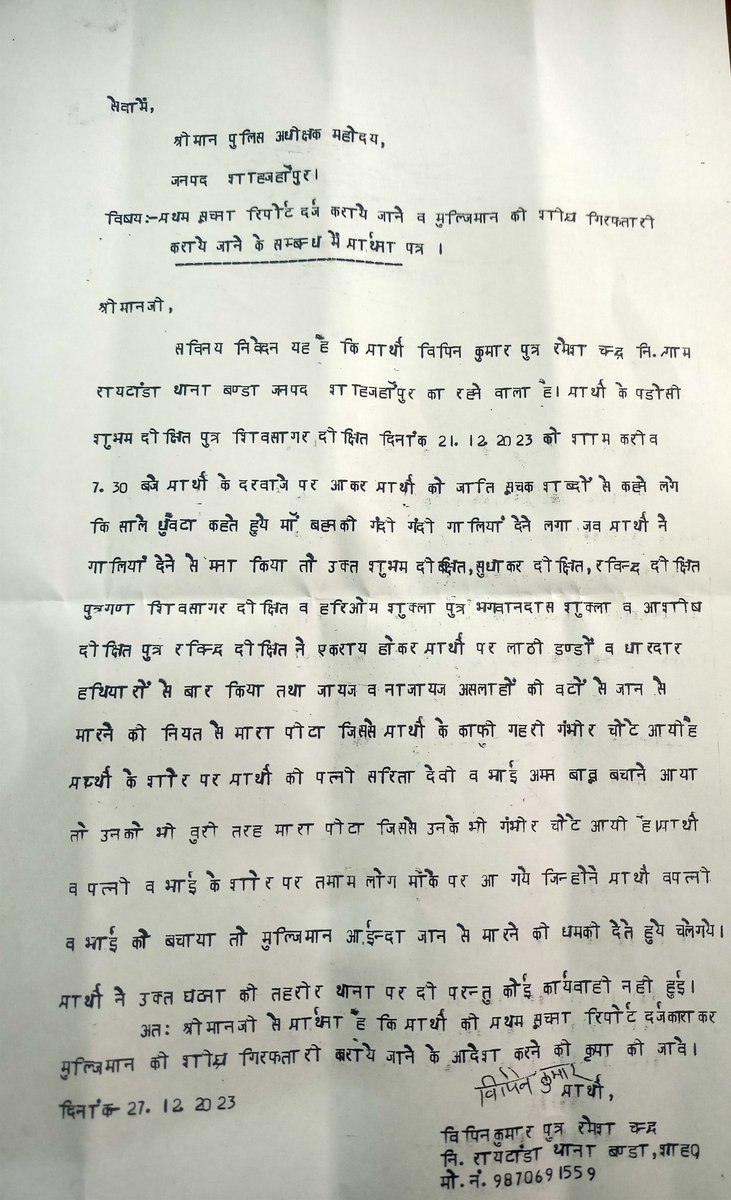 सेवामें,
श्रीमान पुलिस अधीक्षक महोदय,
जनपद शाहजहाँपुर।
विषय:-प्रथम सूचना रिपोर्ट दर्ज कराये जाने व मुल्जिमान की शीघ्र गिरफतारी
कराये जाने के सम्बन्ध में प्रार्थना पत्र ।
श्रीमानजी,
सविनय निवेदन यह है कि प्रार्थी विपिन कुमार पुत्र रमेश चन्द्र नि.ग्राम
रायटांडा थाना बण्डा जनपद शाहजहाँपुर का रहने वाला है। प्रार्थी के पडोसी
शुभम दीक्षित पुत्र शिवसागर दीक्षित दिनांक 21.12.2023 को शाम करीव
7.30 बजे प्रार्थी के दरवाजे पर आकर प्रार्थी को जाति सूचक शब्दों से कहने लगे
कि साले धुँवटा कहते हुये माँ बहनकी गंदी गंदी गालियां देने लगा जव प्रार्थी ने
गालियां देने से मना किया तो उक्त शुभम दीक्षित,सुधाकर दीक्षित,रविन्द्र दीक्षित
पुत्रगण शिवसागर दीक्षित व हरिओम शुक्ला पुत्र भगवानदास शुक्ला व आशीष
दीक्षित पुत्र रविन्द्र दीक्षित ने एकराय होकर प्रार्थी पर लाठी डण्डों व धारदार
हथियारों से बार किया तथा जायज व नाजायज असलाहों की वटों से जान से
मारने की नियत से मारा पीटा जिससे प्रार्थी के काफी गहरी गंभीर चोटे आयीहै
प्रार्थी के शोर पर प्रार्थी की पत्नी सरिता देवी व भाई अमन बाबू बचाने आया
तो उनको भी वुरी तरह मारा पीटा जिससे उनके भी गंभीर चोटे आयी है।प्रार्थी
व पत्नी व भाई के शोर पर तमाम लोग मौके पर आ गये जिन्होने प्रार्थी वपत्नी
व भाई को बचाया तो मुल्जिमान आईन्दा जान से मारने की धमकी देते हुये चलेगये।
प्रार्थी ने उक्त घटना की तहरीर थाना पर दी परन्तु कोई कार्यवाही नही हुई।
अत: श्रीमानजी से प्रार्थना है कि प्रार्थी की प्रथम सूचना रिपोर्ट दर्जकाराकर
मुल्जिमान की शीघ्र गिरफतारी कराये जाने के आदेश करने की कृपा की जावे।
विपिन कुमार
दिनांक-27.12.2023
प्रार्थी,
विपिनकुमार पुत्र रमेश चन्द्र
नि. रायटांडा थाना बण्डा,शाह0
मो.नं.9870691559